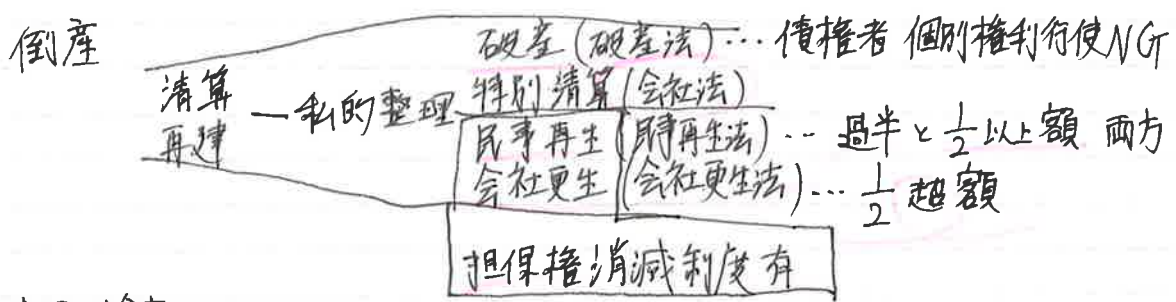 倒産
清算 ― 私的整理
再建
破産(破産法)… 債権者 個別権利行使NG
特別清算(会社法)
民事再生(民事再生法)… 過半と1/2以上額 両方
会社更生(会社更生法)… 1/2超額
担保権消滅制度有